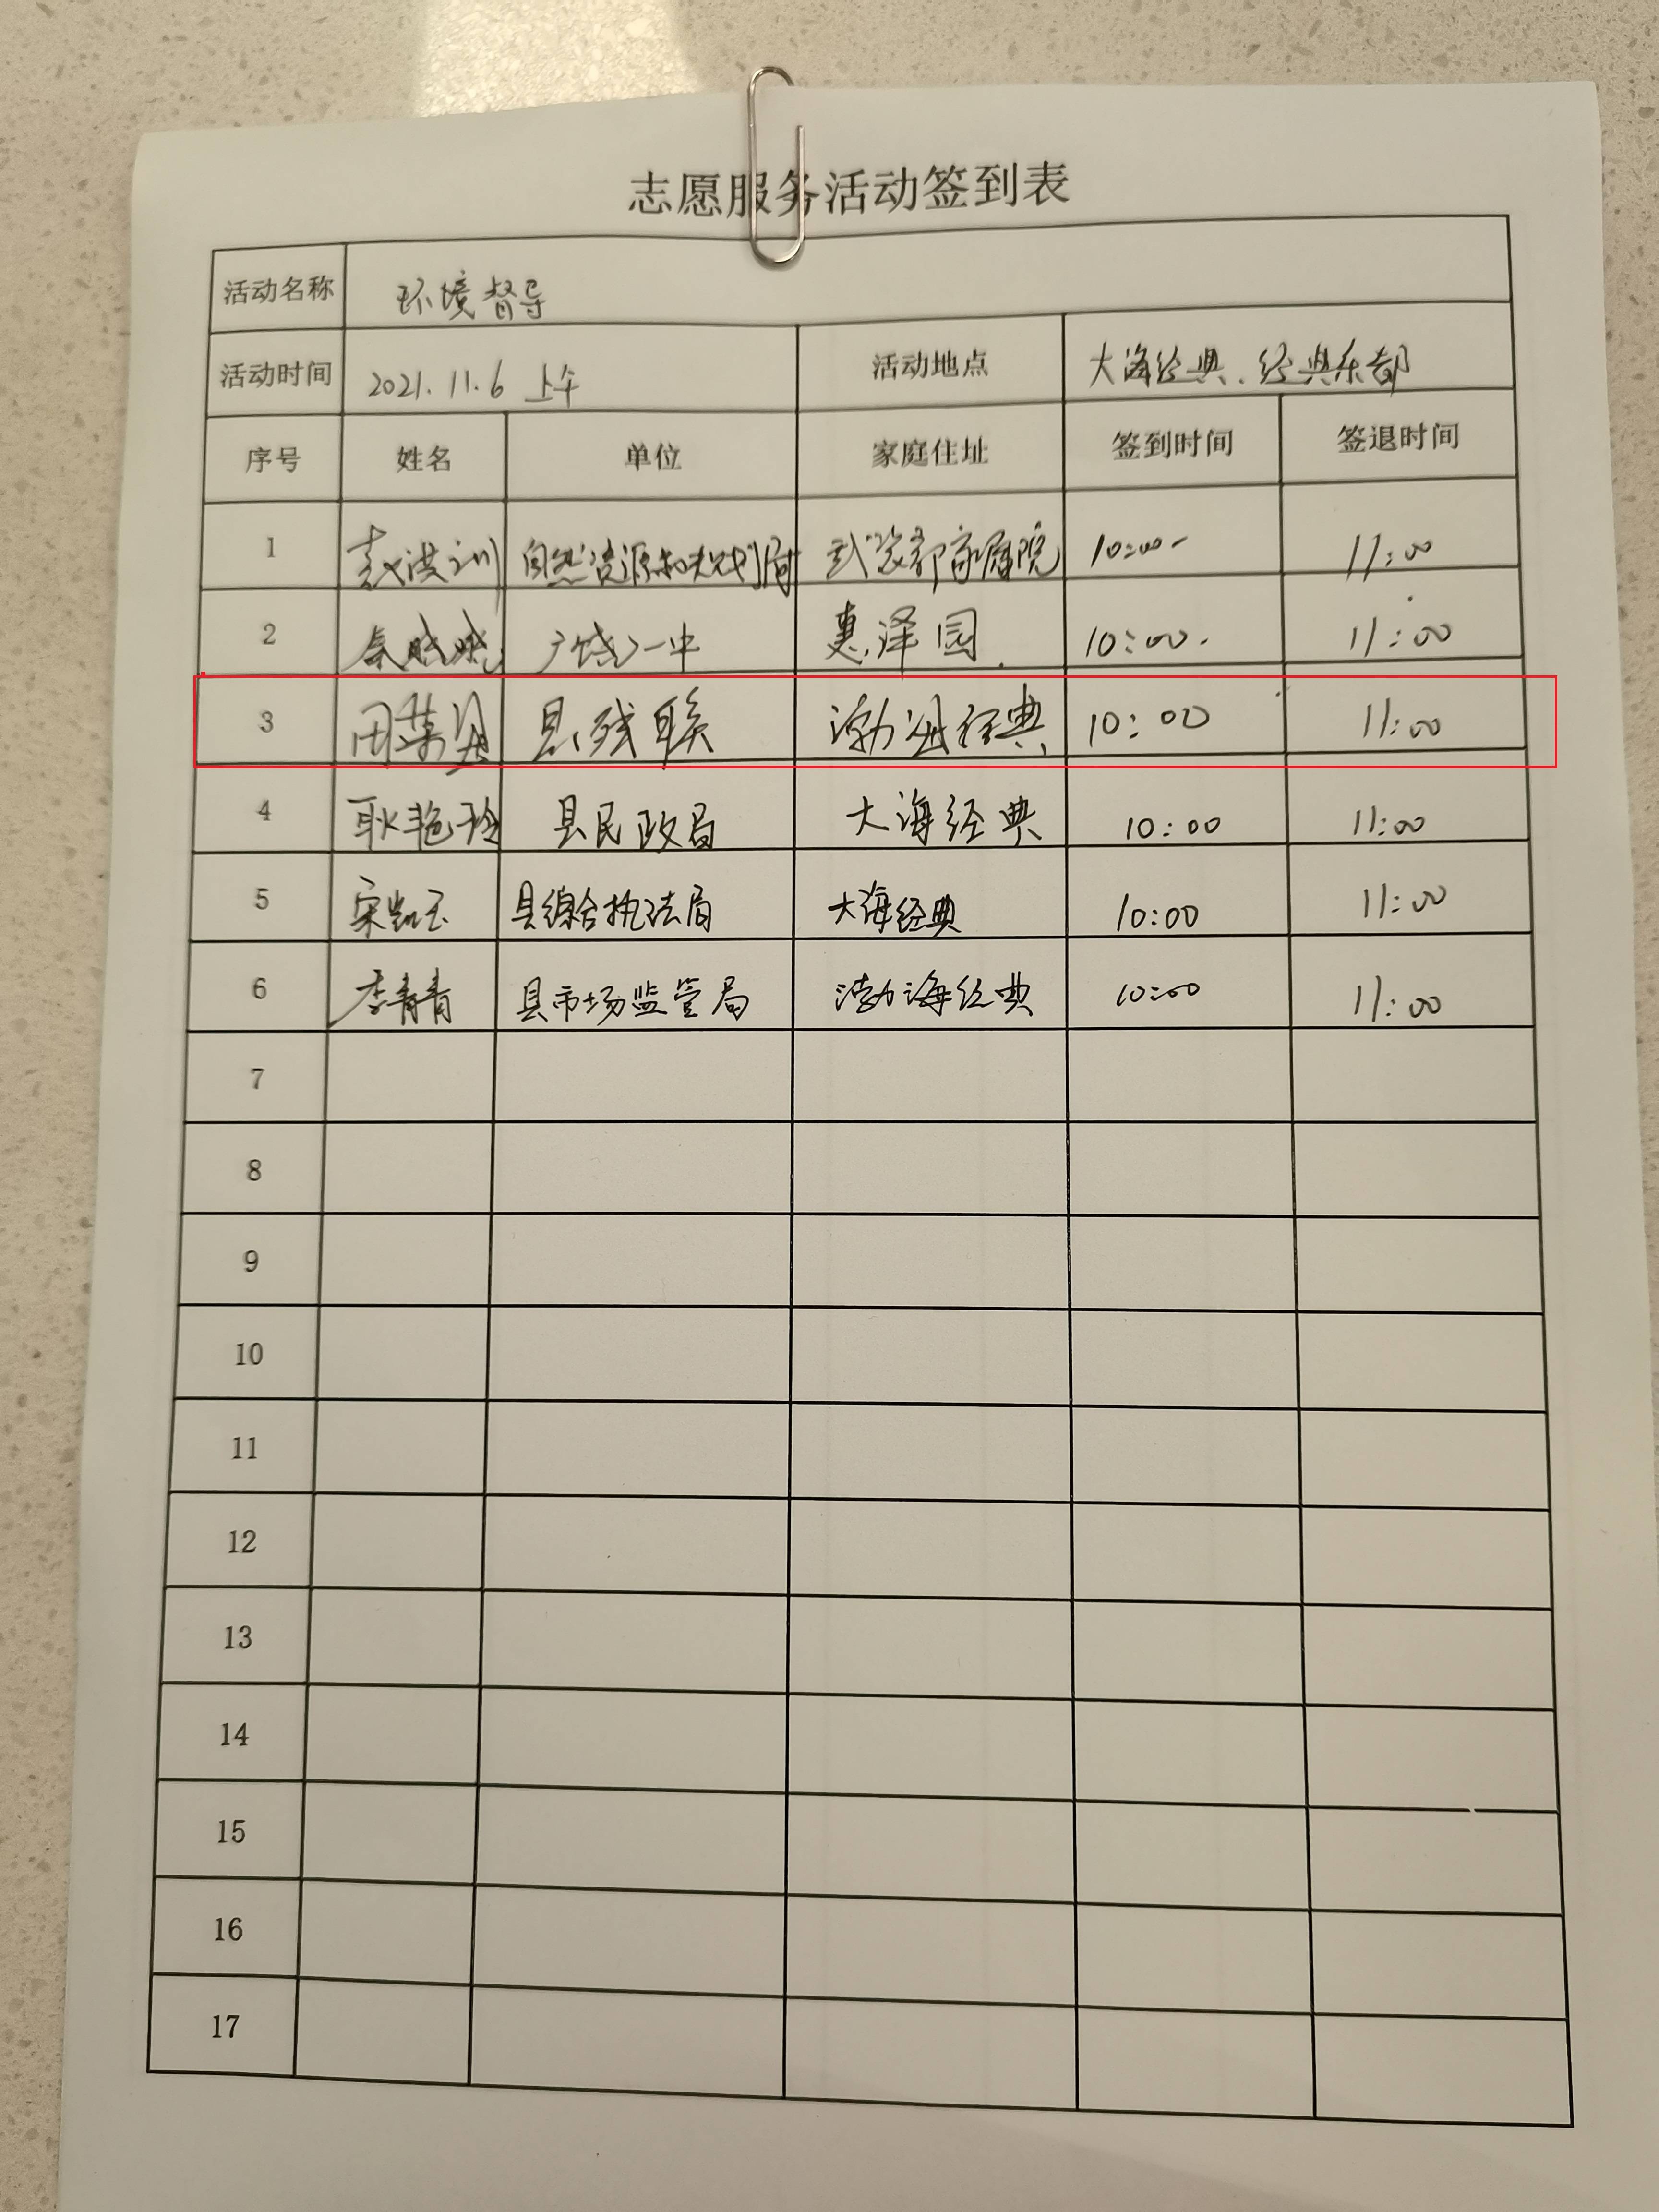 志愿服务活动签到表
活动名称 环境督导
活动时间 2021.11.6 上午 活动地点 大海经典、经典东郡
序号 姓名 单位 家庭住址 签到时间 签退时间
1 袁洪训 自然资源和规划局 武装部家属院 10:00 11:00
2 广饶一中 惠泽园 10:00 11:00
3 县残联 渤海经典 10:00 11:00
4 耿艳玲 县民政局 大海经典 10:00 11:00
5 宋凯玉 县综合执法局 大海经典 10:00 11:00
6 李青青 县市场监管局 渤海经典 10:00 11:00
7
8
9
10
11
12
13
14
15
16
17